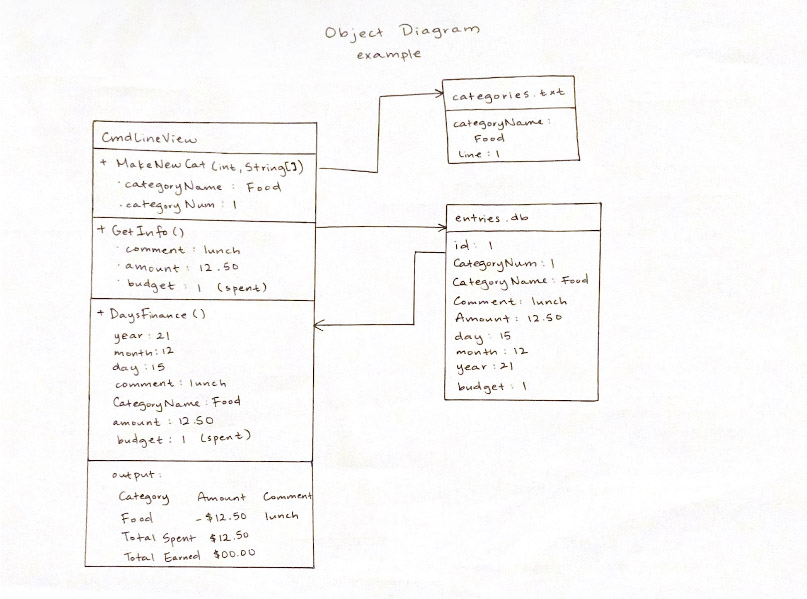 Object Diagram
example
CmdLineView
+ MakeNewCat (int, String[])
· categoryName : Food
· category Num : 1
+ GetInfo ()
· comment : lunch
· amount : 12.50
· budget : 1 (spent)
+ DaysFinance ()
year : 21
month : 12
day : 15
comment : lunch
CategoryName : Food
amount : 12.50
budget : 1 (spent)
output :
Category Amount Comment
Food -$12.50 lunch
Total Spent $12.50
Total Earned $00.00
categories.txt
categoryName :
Food
Line : 1
entries.db
id : 1
CategoryNum : 1
CategoryName : Food
Comment : lunch
Amount : 12.50
day : 15
month : 12
year : 21
budget : 1